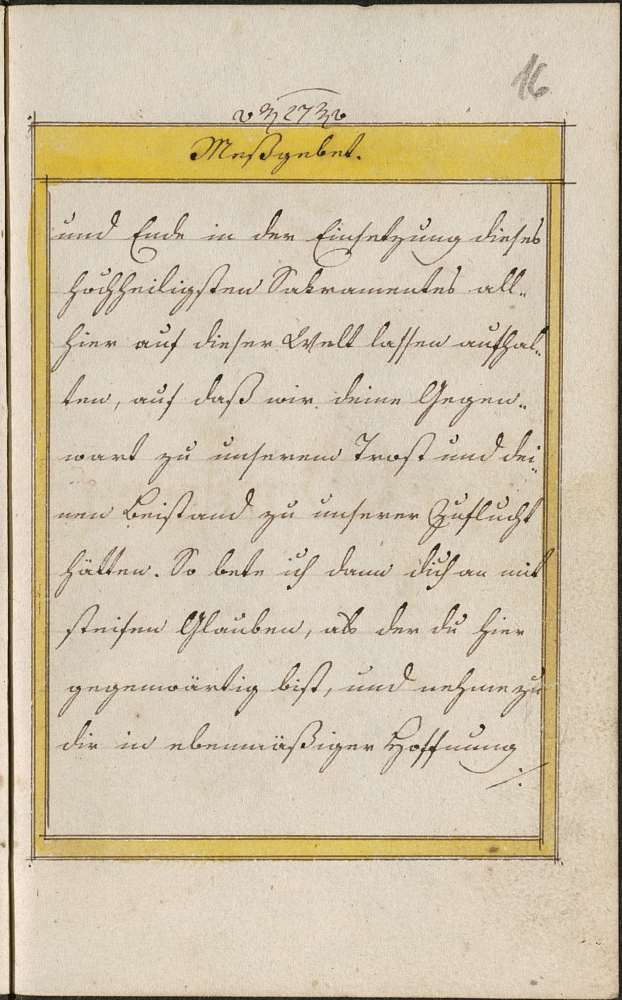 16
27
Meßgebet.
und Ende in der Einsetzung dieses
hochheiligsten Sakramentes all-
hier auf dieser Welt lassen aufhal-
ten, auf daß wir deine Gegen-
wart zu unserem Trost und dei-
nen Beistand zu unserer Zuflucht
hätten. So bete ich dann dich an mit
steifen Glauben, als der du hier
gegenwärtig bist, und nehme zu
dir in ebenmäßiger Hoffnung